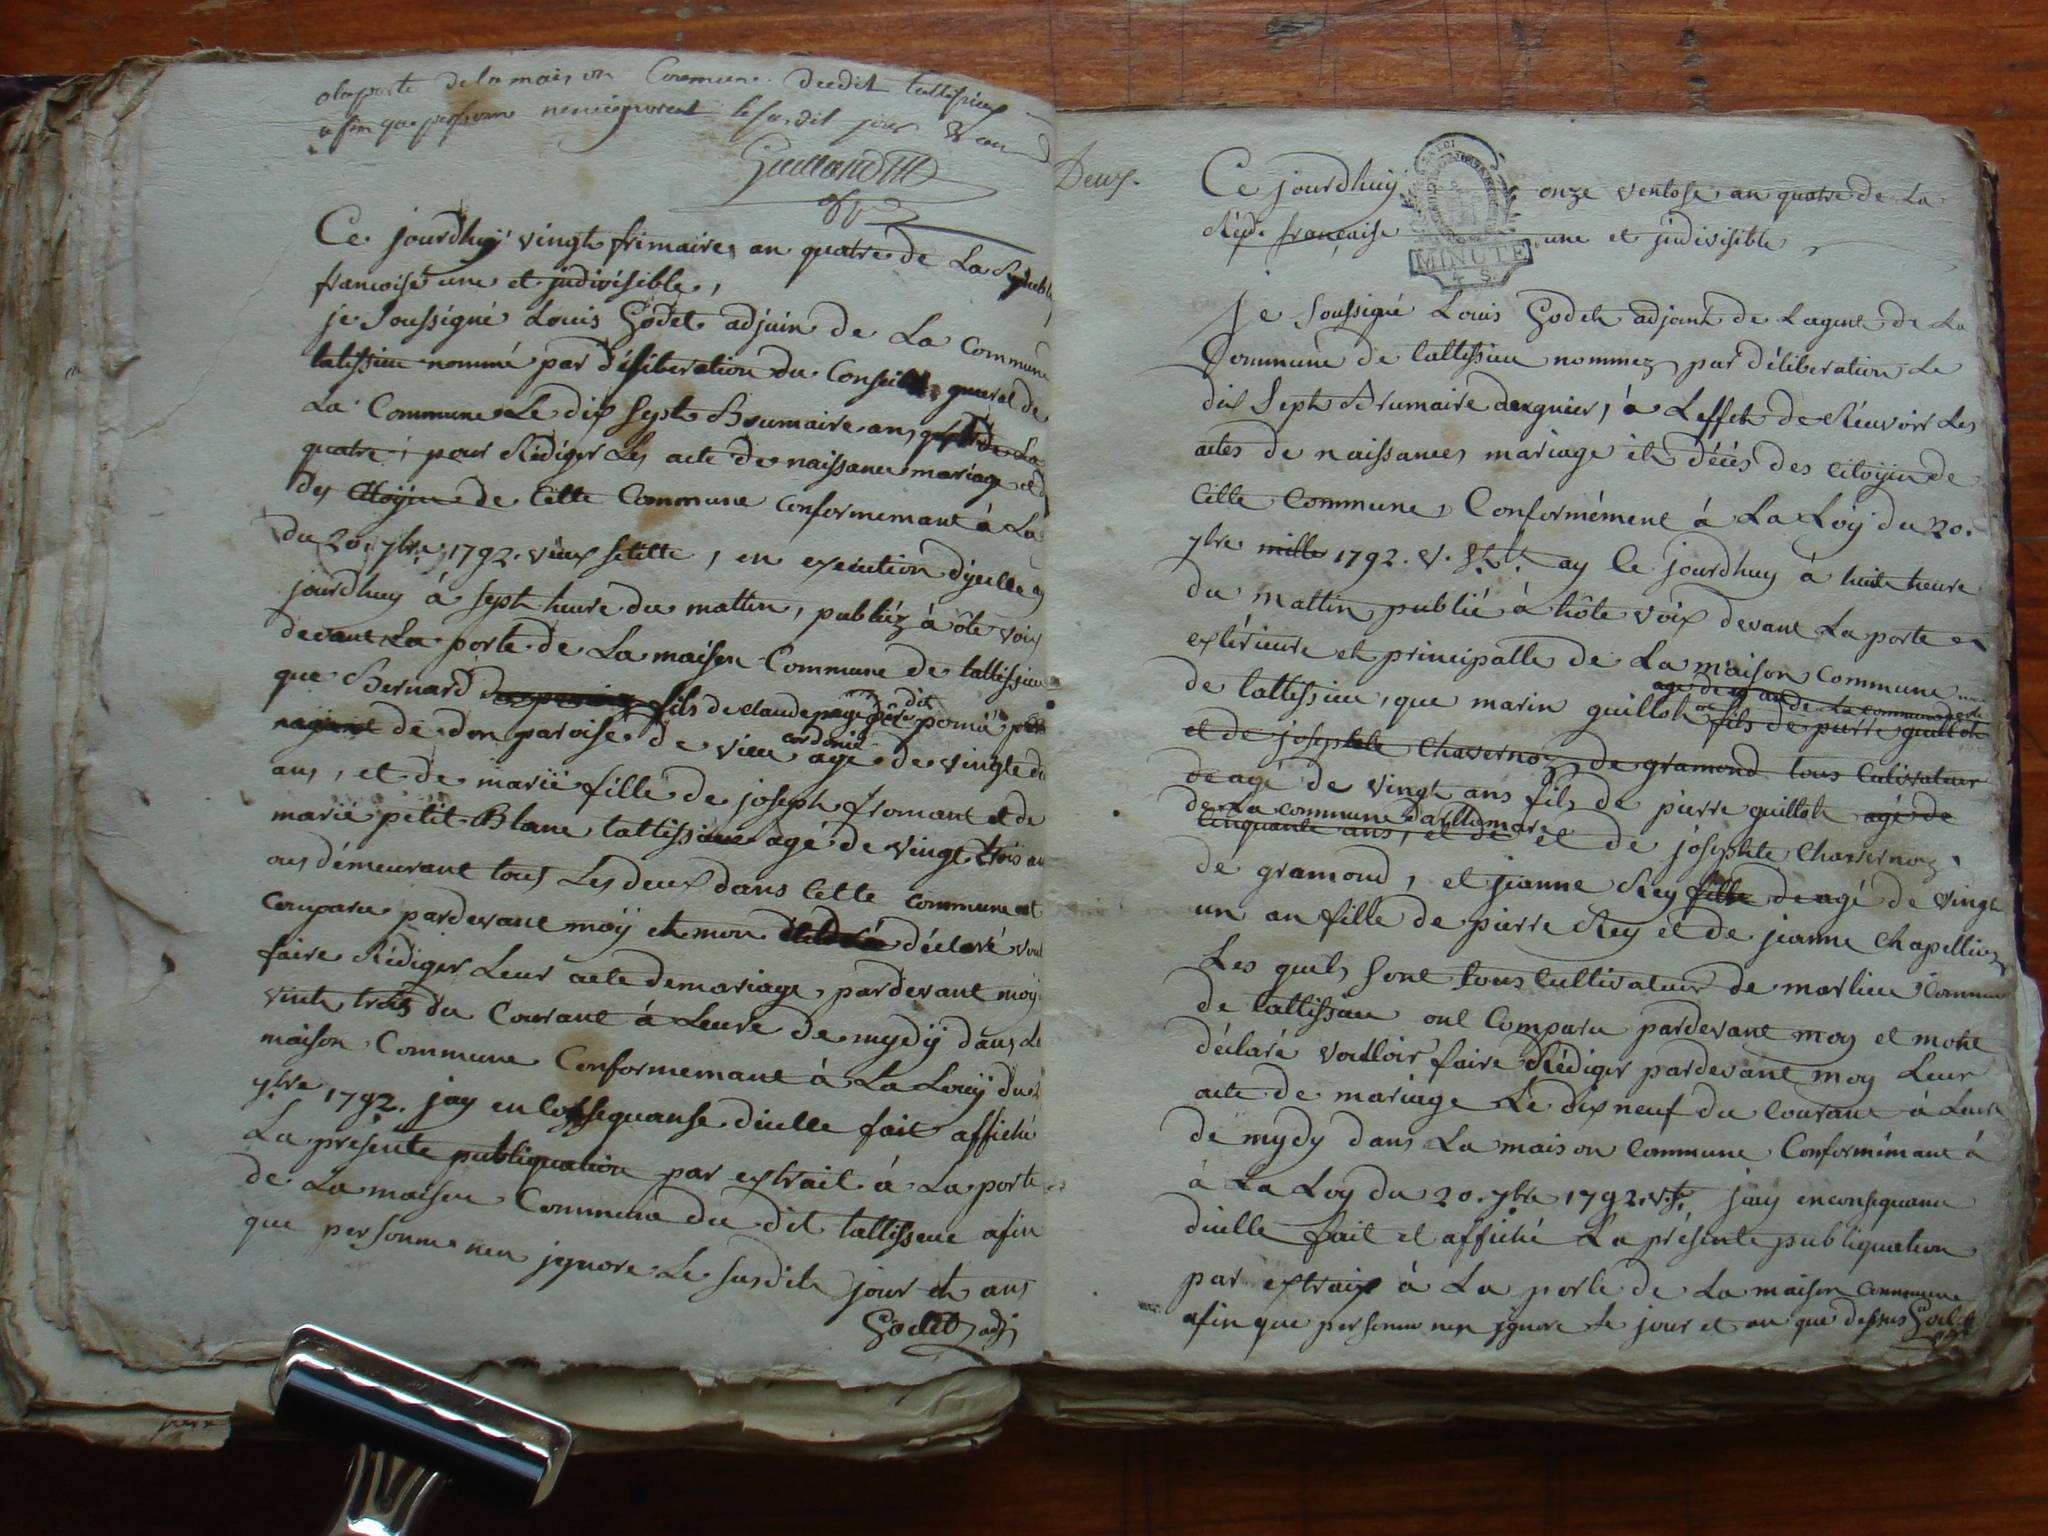 a la porte de la maison Commune dudit tallissieu
afin que personne n'en ignorent le susdit jour & an
Gaillard
Ce jourdhuy vingt frimaire, an quatre de La Republi
francoise une et jndivisible,
je soussigné Louis Godet adjuin de La Commune
talissieu nommé par déliberation du Conseil general de
La Commune Le dix sept Brumaire an
quatre, pour Rédiger Les acte de naissance mariage et
des Citoÿin de Cette Commune Conformemant à La
du 20. 7bre 1792. vieux stille, en execution dycelle
jourdhuy à sept heure du mattin, publiéz à ôte voix
devant La porte de La maison Commune de tallissieu
que Bernard fils de claude dit pomié
de don paroise de vieu cordonié agé de vingte d
ans, et de marië fille de joseph fromant et de
marië petit Blanc tallissieu agé de vingt trois an
demeurant tous Les deux dans Cette commune ont
comparu pardevant moÿ et mon déclaré voul
faire Rédiger Leur acte demariage, pardevant moÿ
vint trois du Courant à Leure de mydÿ dans La
maison Commune Conformemant à La Loiÿ du
7bre 1792. jay en Cossequanse dicelle fait affiché
La présente publiquation par extrait à La porte
de La maison Commune du dit tallissieu afin
que personne nen jgnore Le susdit jour et ans
Godet adj
Deux.
Ce jourdhuy onze ventose an quatre de La
Rép. française une et jndivisible
MINUTE
4 S.
Je soussigné Louis Godet adjoint de Lagent de La
Commune de tallissieu nommez par déliberation Le
dix Sept Brumaire dergnier, à Leffet de Réuvoir Les
actes de naissances mariage et décès des Citoÿin de
Cette Commune, Conformément à La Loÿ du 20.
7bre mille 1792. v. st. ay Ce jourdhuy à huit heure
du mattin publié à hôte voix devant La porte
extérieure et principalle de La maison Commune
de tallissieu, que marin guilloh fils de pierre guilloh
et de josephte Chavernoz de gramond tous Cultivateur
de agé de vingt ans fils de pierre guilloh agé de
de La commune Dartlemare
Cinquante ans, et de et de josephte Chavernoz
de gramond, et jeanne Rey fille de agé de vingt
un an fille de pierre Rey et de jeanne Chapellu
Les quels sont tous Cultivateur de marlieu Commun
de tallissieu ont Comparu pardevant moy et mont
déclaré voulloir faire Rédiger pardevant moy Leur
acte de mariage Le dix neuf du Courant à Leure
de mydy dans La maison Commune Conformémant à
à La Loy du 20. 7bre 1792. v. st. jay en consequance
dicelle fait et affiché La présente publiquation
par extrait à La porte de La maison Commune
afin que personne nen jgnore Le jour et an que dessus Godet